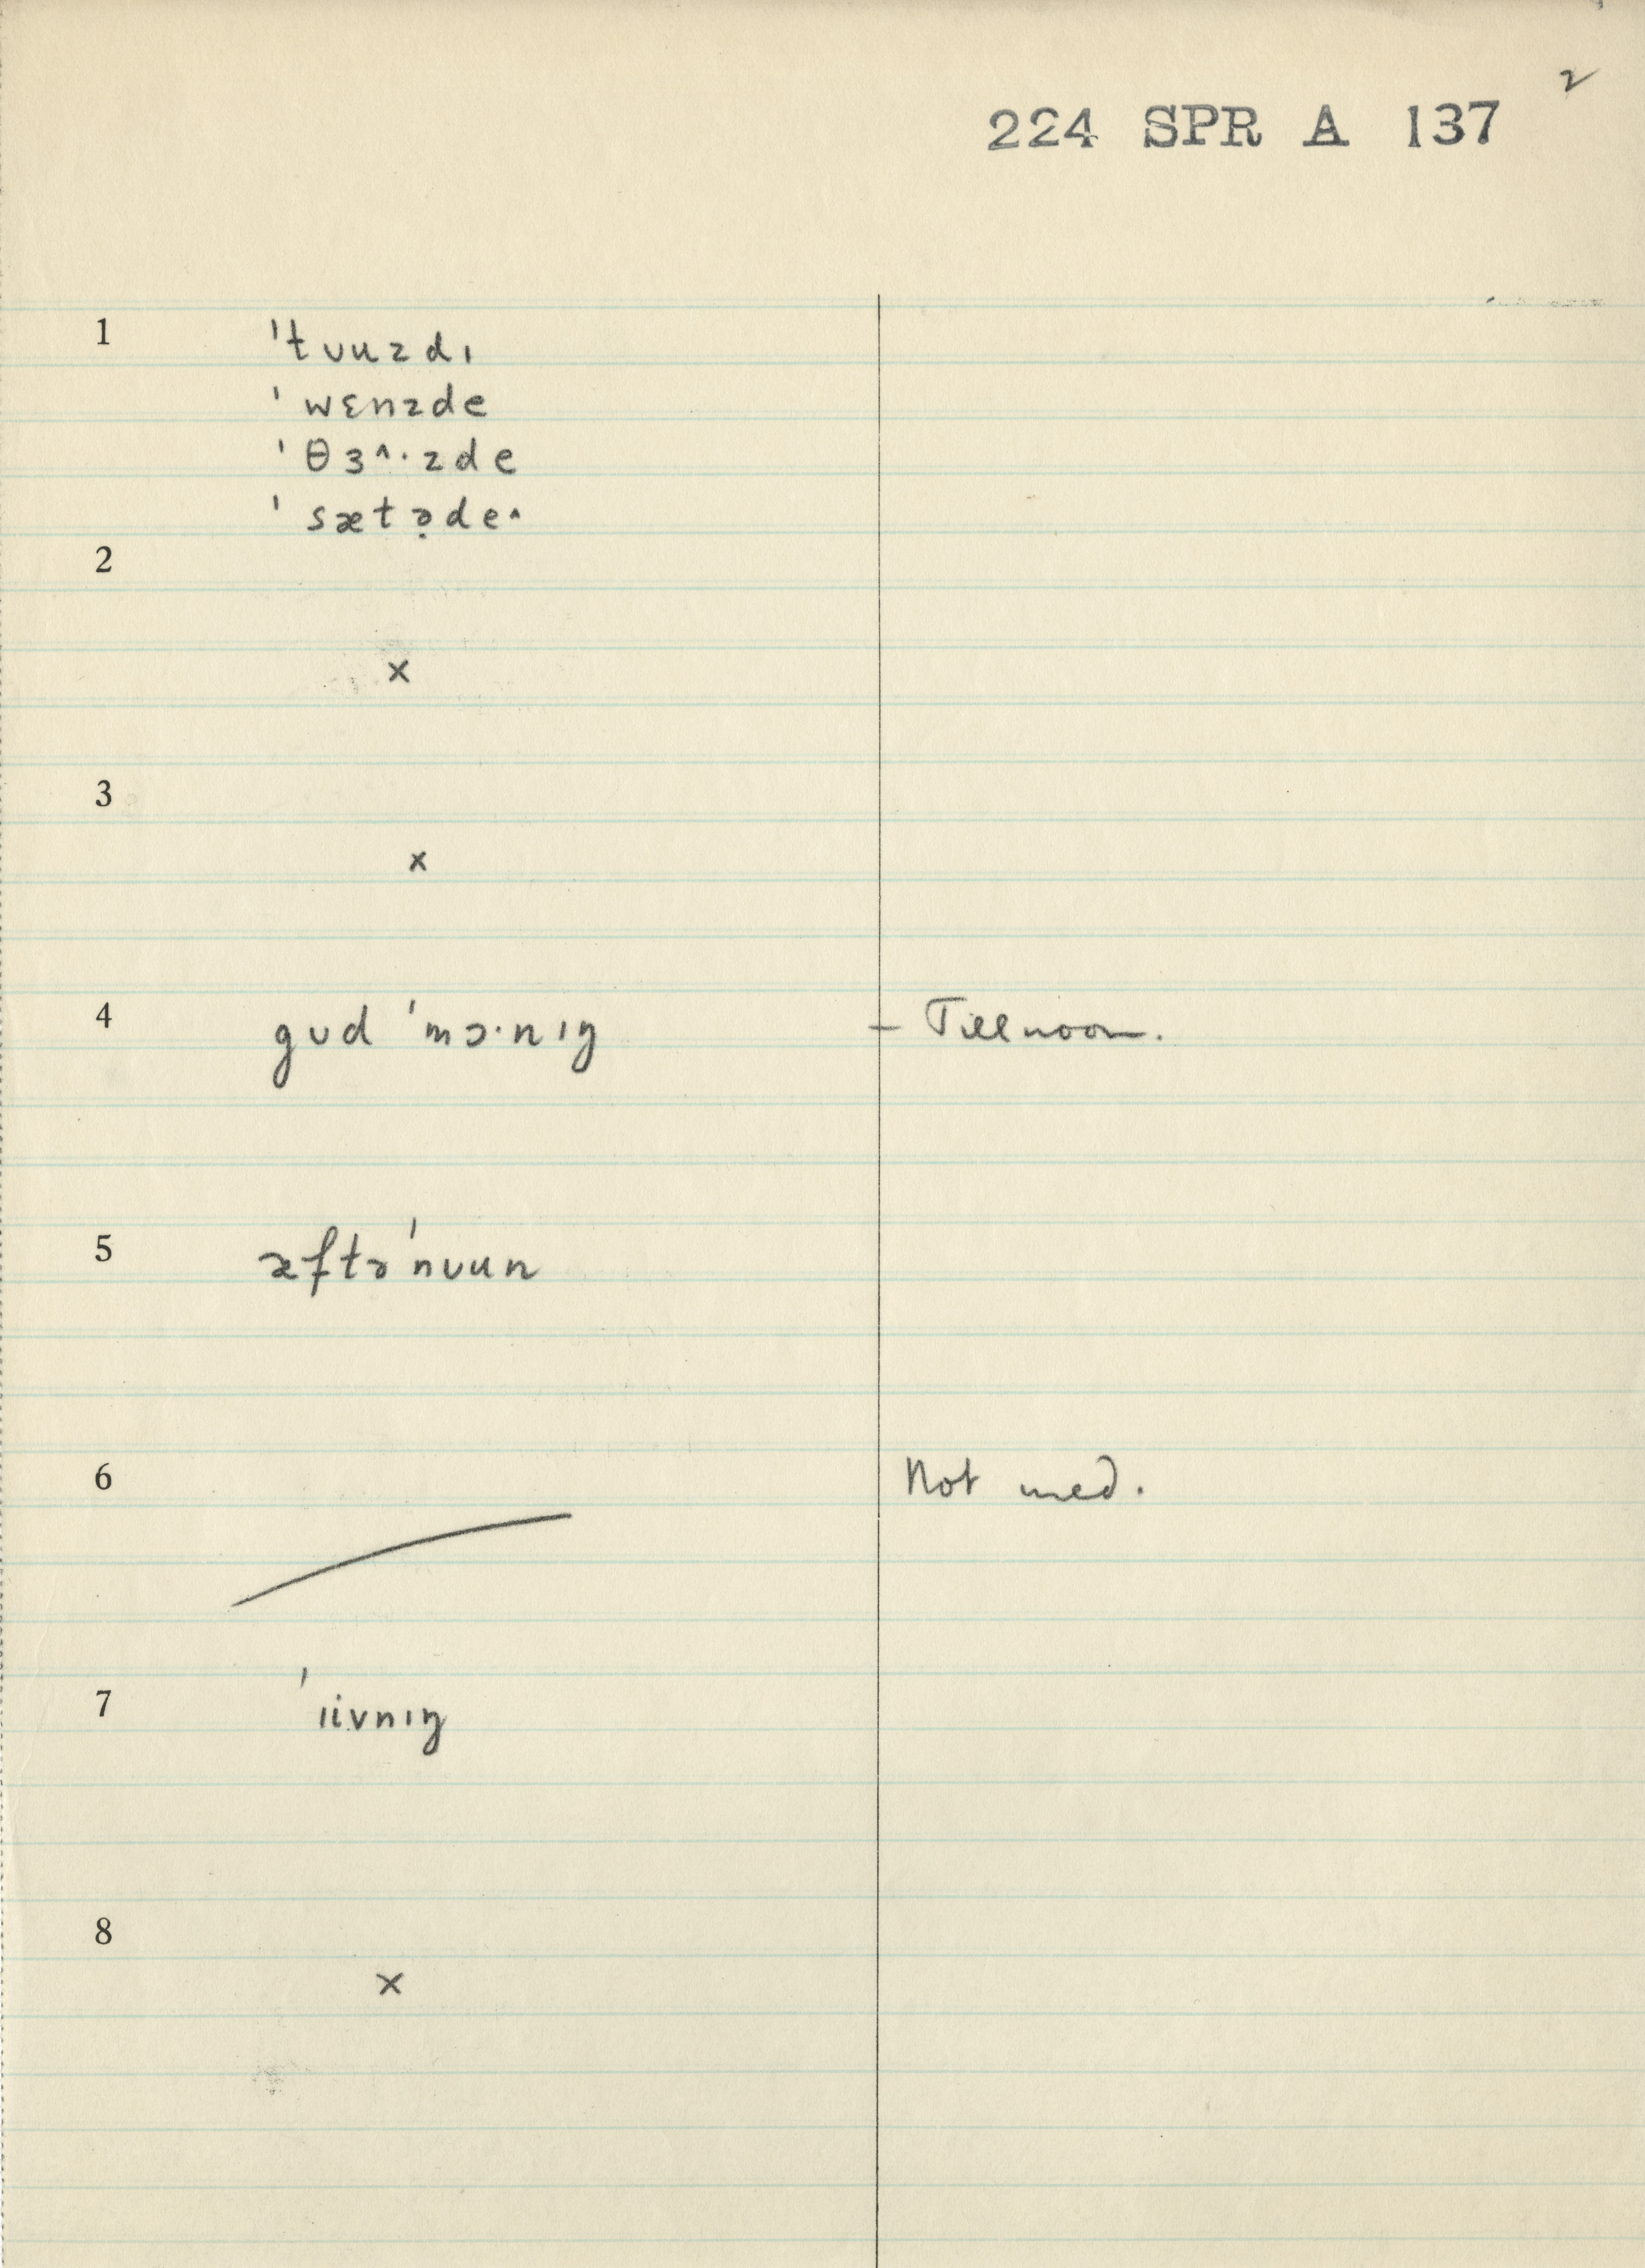 2
224 SPR A 137
1 ˈtʊuzdɪ
ˈwɛnzde
ˈθɜ^·zde
ˈsætə̣de^
2
x
3
x
4 gʊd ˈmɔ·nɪŋ – Till noon.
5 æftəˈnʊun
6 Not used.
7 ˈɪivnɪŋ
8
x